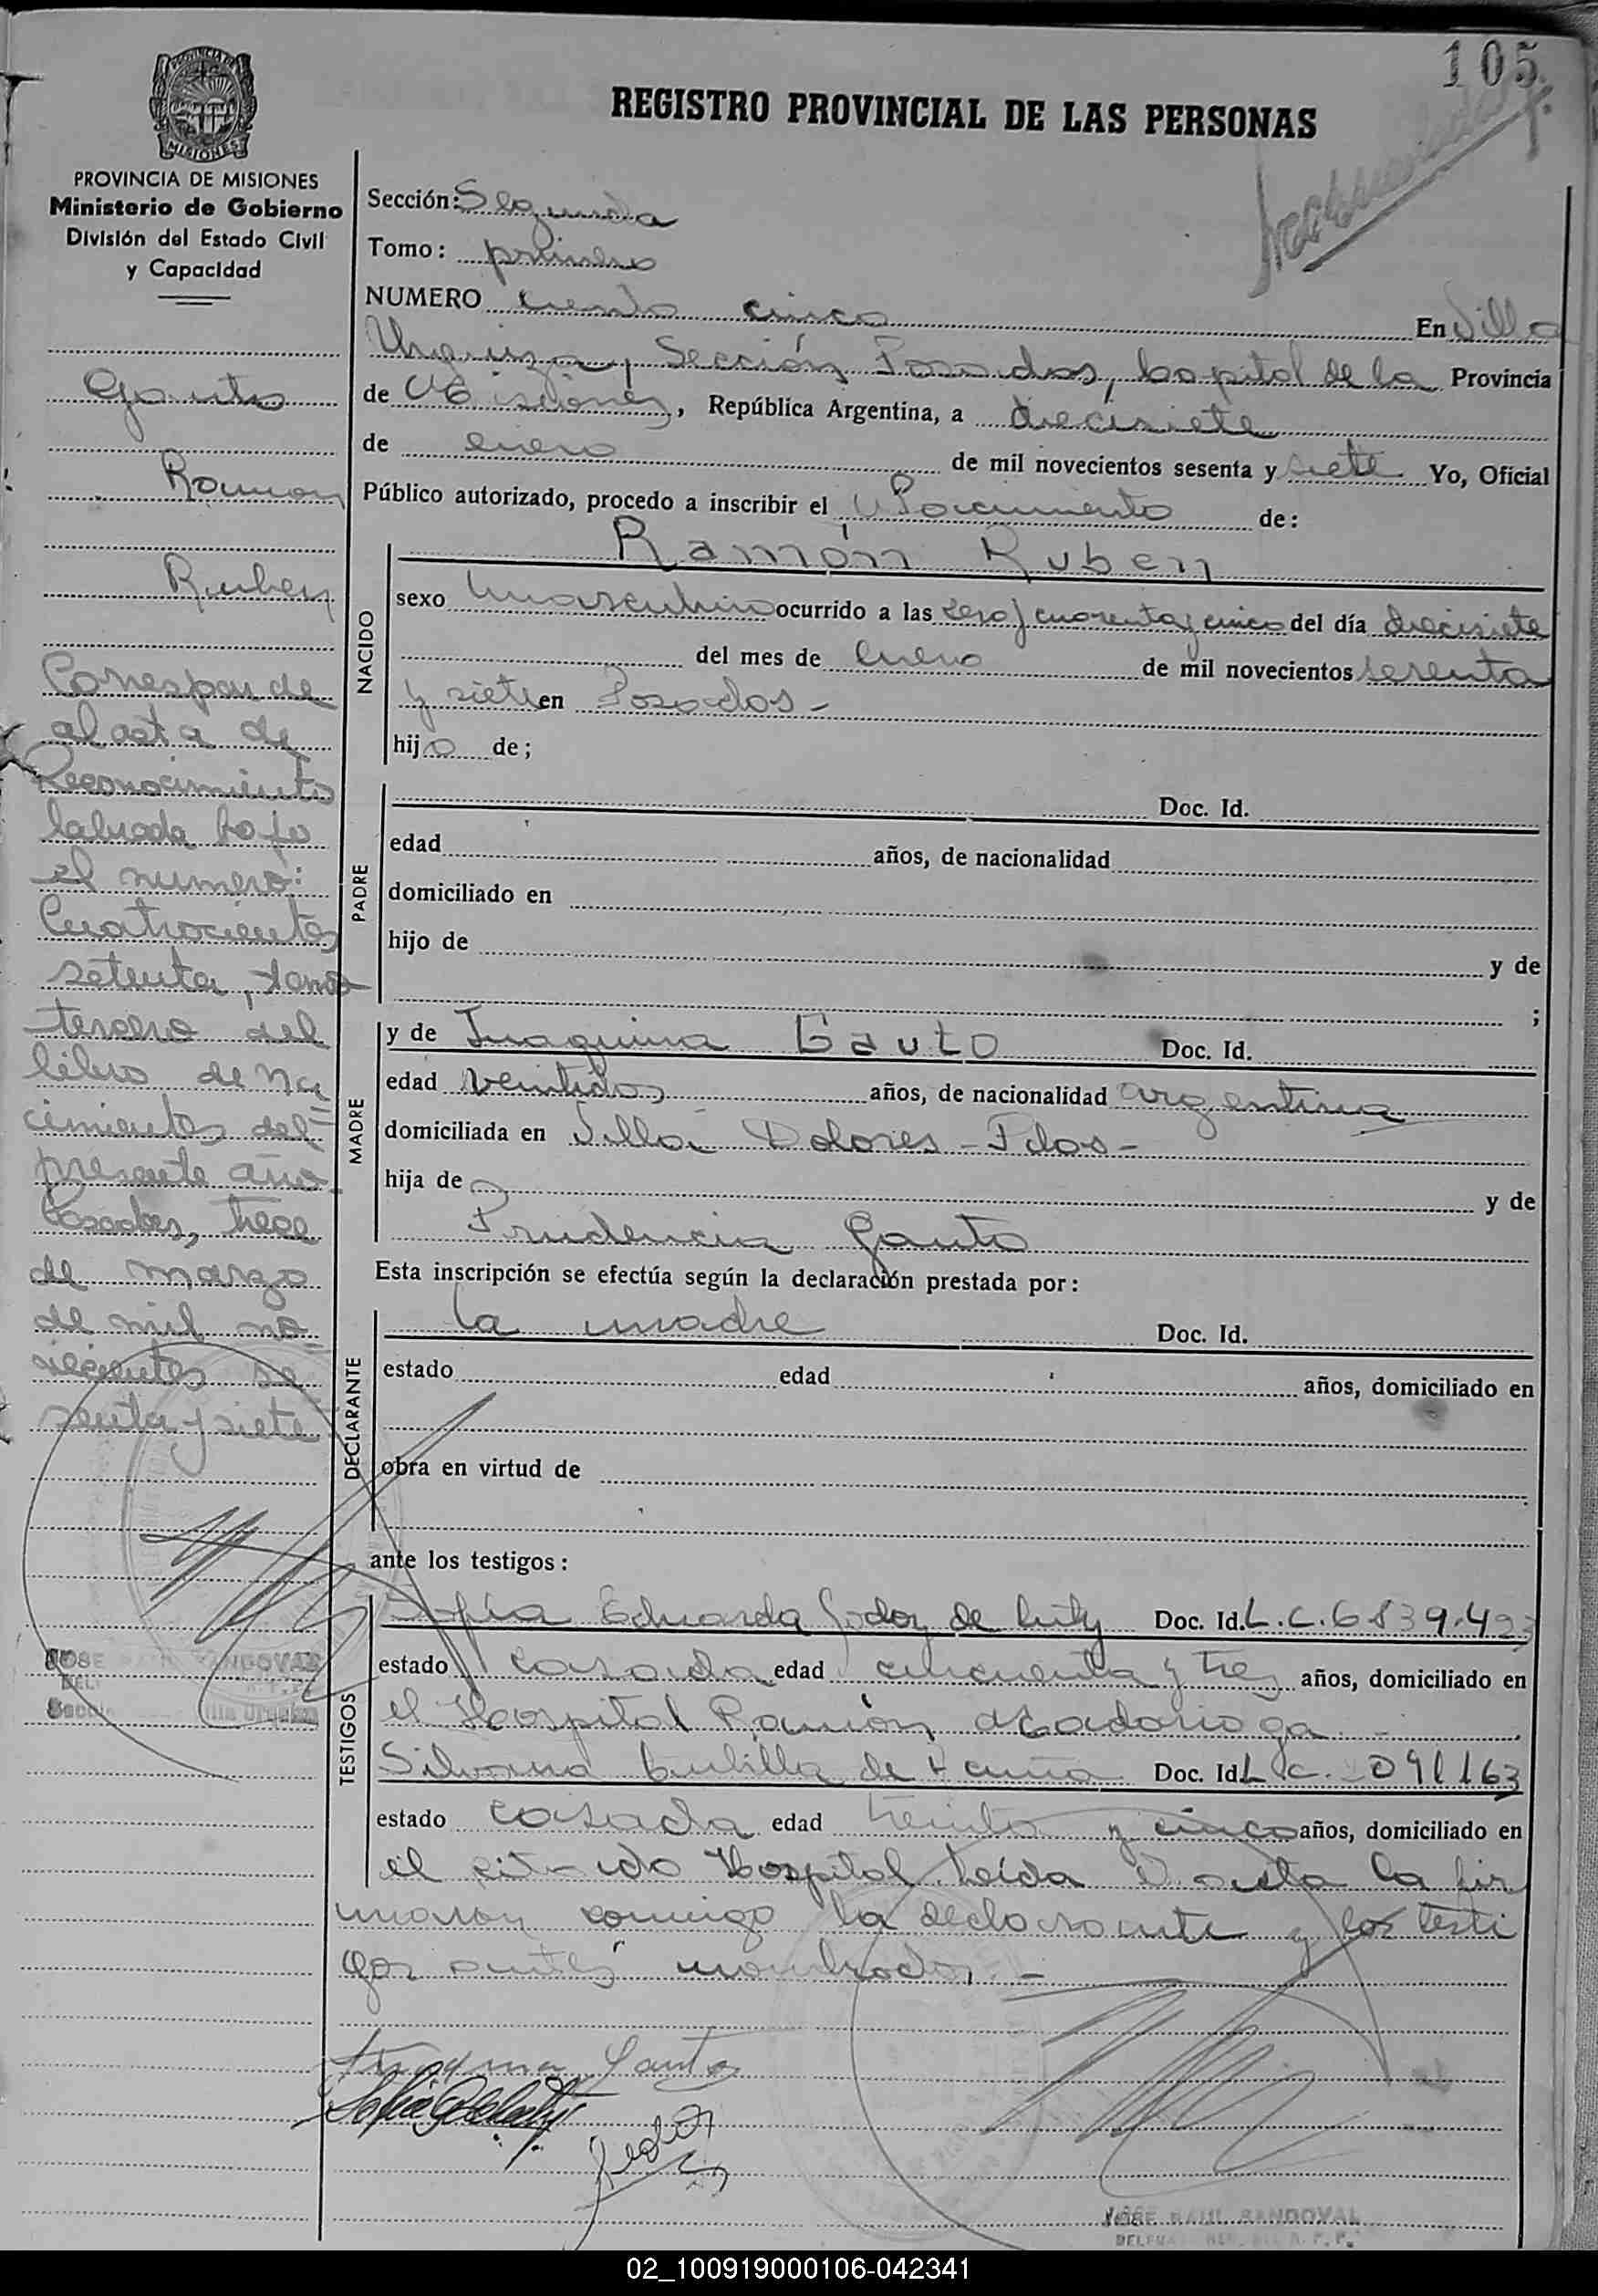 105
REGISTRO PROVINCIAL DE LAS PERSONAS
MISIONES
PROVINCIA DE MISIONES
Ministerio de Gobierno
División del Estado Civil
y Capacidad
Gauto
Ramon
Ruben
Corresponde
al acta de
Reconocimiento
labrada bajo
el numero:
Cuatrocientos
setenta, tomo
tercero del
libro de Na
cimientos del
presente año.
Posadas, trece
de marzo
de mil no
vecientos se
senta y siete
JOSE RAUL SANDOVAL
Sección: Segunda
Tomo: primero
NUMERO ciento cinco En Villa
Urquiza, Sección Posadas, Capital de la Provincia
de Misiones, República Argentina, a diecisiete
de enero de mil novecientos sesenta y siete Yo, Oficial
Público autorizado, procedo a inscribir el Nacimiento de:
NACIDO
Ramón Ruben
sexo masculino ocurrido a las cero y cuarenta y cinco del día diecisiete
del mes de enero de mil novecientos sesenta
y siete en Posadas -
hijo de;
PADRE
Doc. Id.
edad años, de nacionalidad
domiciliado en
hijo de y de
;
MADRE
y de Juaquina Gauto Doc. Id.
edad veintidos años, de nacionalidad argentina
domiciliada en Villa Dolores - Pdas -
hija de y de
Prudencia Gauto
Esta inscripción se efectúa según la declaración prestada por:
DECLARANTE
la madre Doc. Id.
estado edad años, domiciliado en
obra en virtud de
ante los testigos:
TESTIGOS
Sofia Eduarda Godoy de Doc. Id. L.C. 6839.423
estado casada edad cincuenta y tres años, domiciliado en
el Hospital Ramón Madariaga
Silvana de Acuña Doc. Id. L.C.
estado casada edad treinta y cinco años, domiciliado en
el citado Hospital. Leída el acta la fir
maron conmigo la declarante y los testi
gos antes nombrados. -
Gauto
JOSE RAUL SANDOVAL
02_100919000106-042341